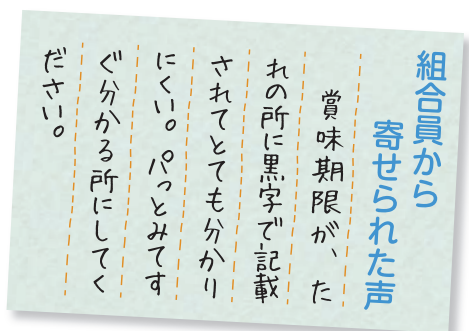 組合員から
寄せられた声
賞味期限が、た
れの所に黒字で記載
されてとても分かり
にくい。パっとみてす
ぐ分かる所にしてく
ださい。